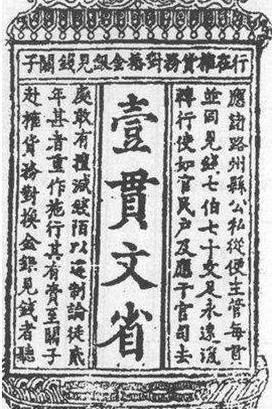 行在榷貨務對樁金銀見錢關子
應諸路州縣公私從便主管每貫
並同見錢七伯七十文足永遠流
轉行使如官民戶及應干官司去
壹貫文省
處敢有擅減錢陌以違制論徒貳
年甚者重作施行其有賫至關子
赴榷貨務對換金銀見錢者聽